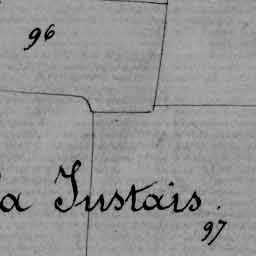 96
a Justais.
97